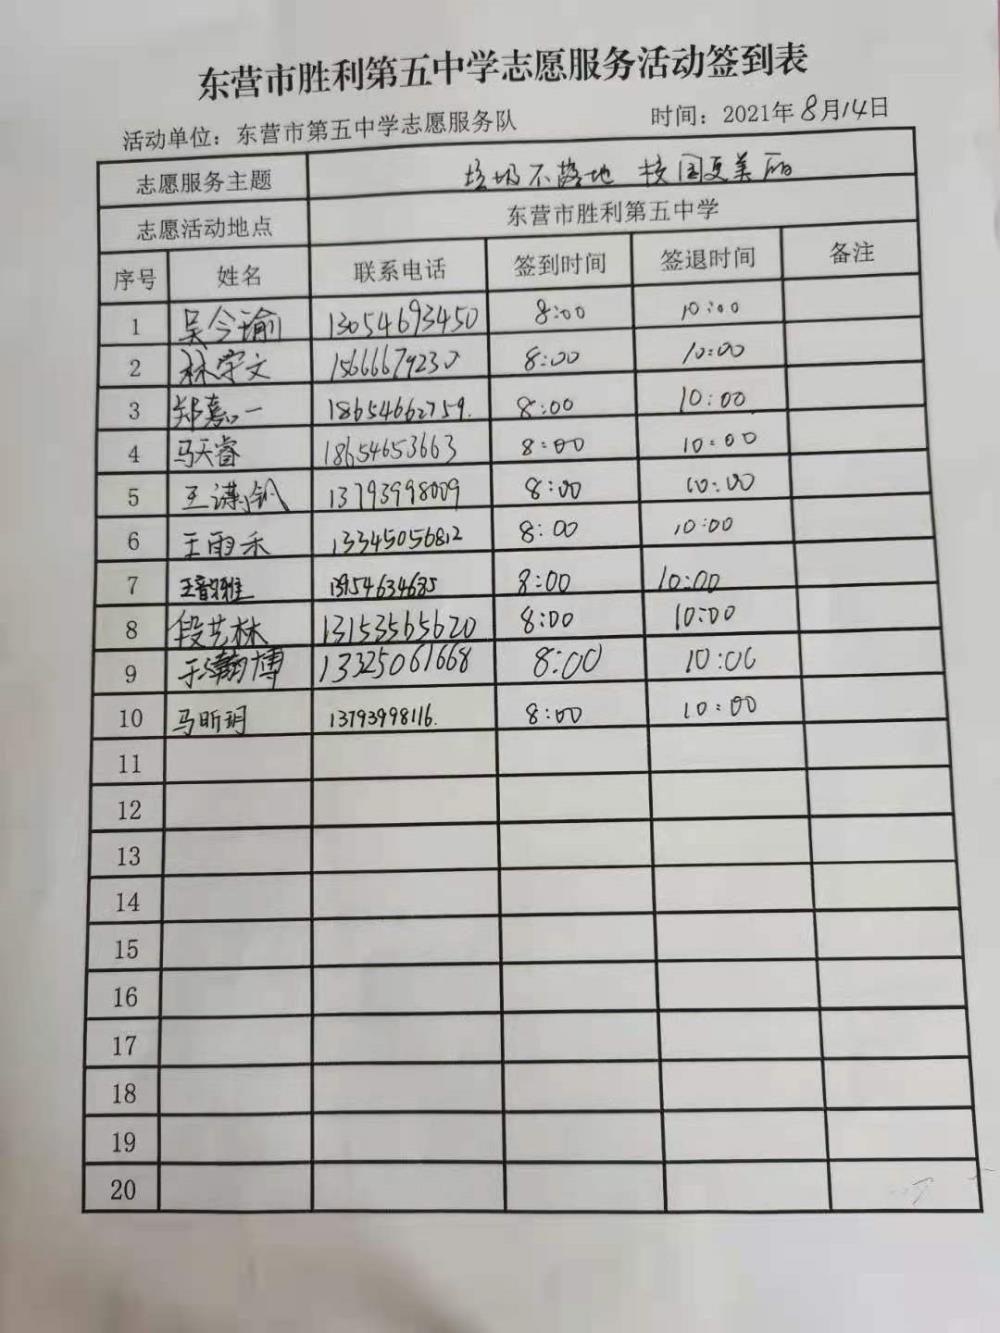 东营市胜利第五中学志愿服务活动签到表
活动单位：东营市第五中学志愿服务队 时间：2021年8月14日
志愿服务主题 垃圾不落地 校园更美丽
志愿活动地点 东营市胜利第五中学
序号 姓名 联系电话 签到时间 签退时间 备注
1 吴令瑜 13054693450 8:00 10:00
2 林宇文 15666679230 8:00 10:00
3 郑嘉一 18654662759. 8:00 10:00
4 马天睿 18654653663 8:00 10:00
5 王潇钒 13793998009 8:00 10:00
6 王雨禾 13345056812 8:00 10:00
7 王韵雅 13954634685 8:00 10:00
8 段艺林 13153565620 8:00 10:00
9 于瀚博 13325061668 8:00 10:00
10 马昕玥 13793998116. 8:00 10:00
11
12
13
14
15
16
17
18
19
20